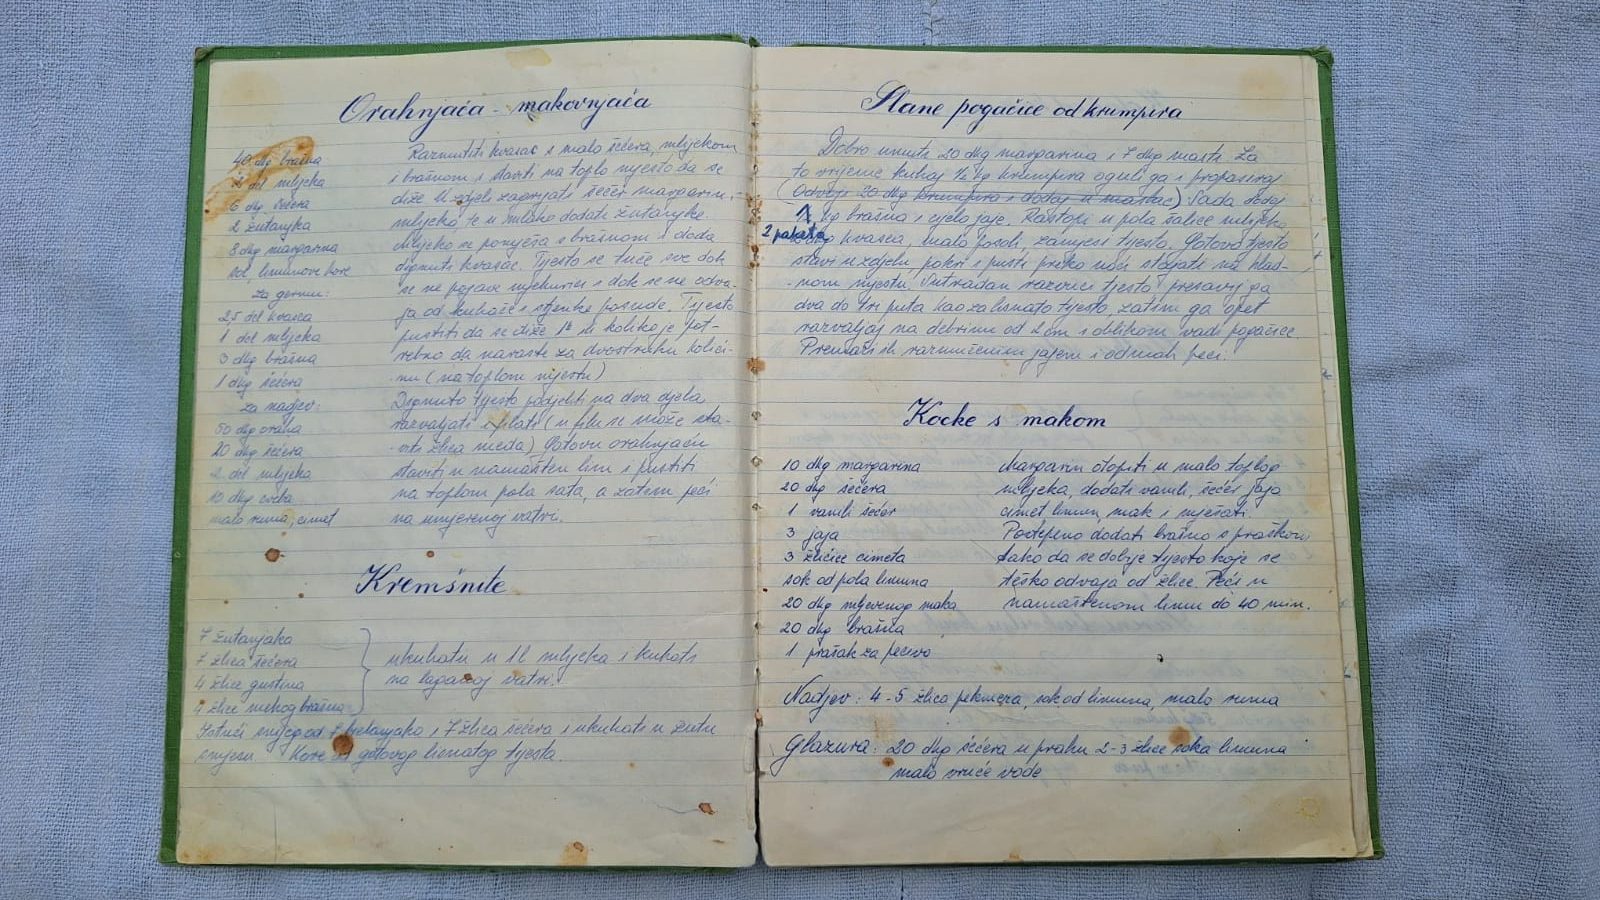 Orahnjača - makovnjača
40 dkg brašna
dcl mlijeka
6 dkg šećera
2 žutanjka
8 dkg margarina
sol, limunove kore
za germu:
2,5 del kvasca
1 del mlijeka
3 dkg brašna
1 dkg šećera
za nadjev:
50 dkg oraha
20 dkg šećera
2 del mlijeka
10 dkg
malo ruma, cimet
Razmutiti kvasac s malo šećera, mlijekom
i brašnom i staviti na toplo mjesto da se
diže. U zdjeli zagrijati šećer margarin,
mlijeko te u mlako dodati žutanjke.
Mlijeko se pomješa s brašnom i doda
dignuti kvasac. Tijesto se tuče sve dok
se ne pojave mjehurići i dok se ne odva-
ja od kuhače i stjenke posude. Tijesto
pustiti da se diže 1h ili koliko je pot-
rebno da naraste za dvostruku količi-
nu (na toplom mjestu)
Dignuto tijesto podjeliti na dva djela
razvaljati i filati (u filu se može sta-
viti žlica meda) Gotovu orahnjaču
staviti u namašten lim i pustiti
na toplom pola sata, a zatim peći
na umjerenoj vatri.
Kremšnite
7 žutanjaka
7 žlica šećera
4 žlice gustina
4 žlice mekog brašna
ukuhati u 1l mlijeka i kuhati
na laganoj vatri.
Istući snijeg od 7 bjelanjaka i 7 žlica šećera i ukuhati u žutu
smjesu. Kore od gotovog lisnatog tijesta.
Slane pogačice od krumpira
Dobro umuti 20 dkg margarina i 7 dkg masti. Za
to vrijeme kuhaj ½ kg krumpira oguli ga i propasiraj
(Odvoji 20 dkg krumpira i dodaj u maslac) Sada dodaj
1 kg brašna i cijelo jaje. Rastopi u pola šalice mlijeka
2 paketa kvasca, malo posoli, zamjesi tijesto. Gotovo tijesto
stavi u zdjelu pokri i pusti preko noći stajati na hlad-
nom mjestu. Sutradan razvuci tijesto presavij ga
dva do tri puta kao za lisnato tijesto, zatim ga opet
razvaljaj na debljinu od 2 cm i oblikom vadi pogačice.
Premaži ih razmućenim jajem i odmah peci.
Kocke s makom
10 dkg margarina
20 dkg šećera
1 vanili šećer
3 jaja
3 žličice cimeta
sok od pola limuna
20 dkg mljevenog maka
20 dkg brašna
1 prašak za pecivo
Margarin otopiti u malo toplog
mlijeka, dodati vanili, šećer jaja
cimet limun, mak i mješati.
Postepeno dodati brašno s praškom
tako da se dobije tijesto koje se
teško odvaja od žlice. Peći u
namaštenom limu do 40 min.
Nadjev: 4-5 žlica pekmeza, sok od limuna, malo ruma
Glazura: 20 dkg šećera u prahu 2-3 žlice soka limuna
malo vruće vode